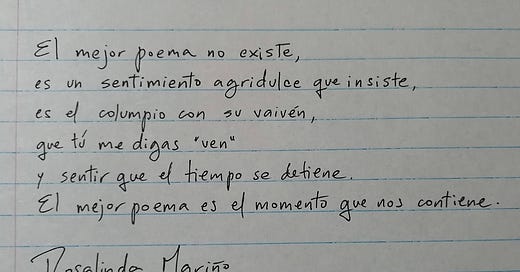 El mejor poema no existe,
es un sentimiento agridulce que insiste,
es el columpio con su vaivén,
que tú me digas "ven"
y sentir que el tiempo se detiene.
El mejor poema es el momento que nos contiene.
Rosalinda Mariño